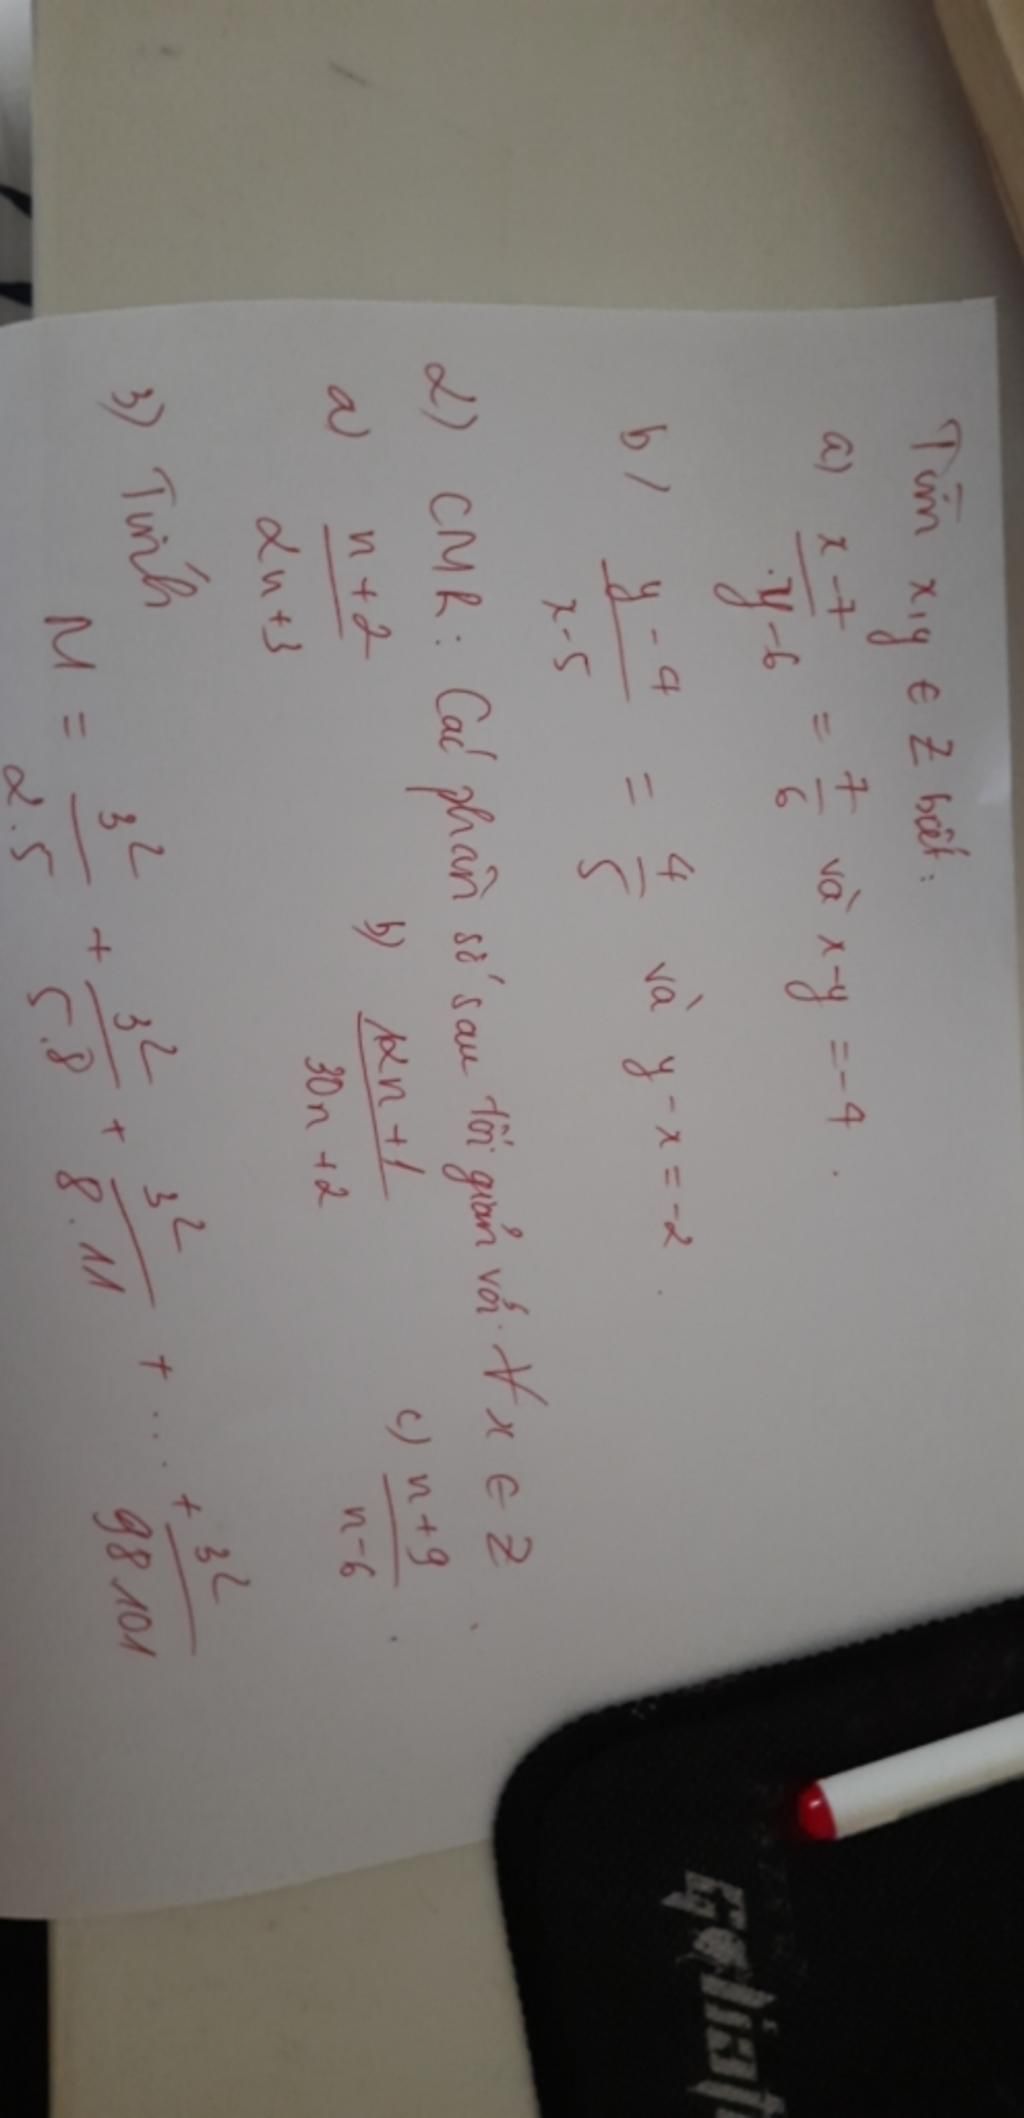 Tìm x,y ∈ Z biết:
a) \frac{x-7}{y-6} = \frac{7}{6} và x-y = -4.
b) \frac{y-4}{x-5} = \frac{4}{5} và y-x = -2.
2) CMR: Các phân số sau tối giản với ∀ x ∈ Z.
a) \frac{n+2}{2n+3} b) \frac{12n+1}{30n+2} c) \frac{n+9}{n-6}.
3) Tính
M = \frac{3^2}{2.5} + \frac{3^2}{5.8} + \frac{3^2}{8.11} + ... + \frac{3^2}{98.101}